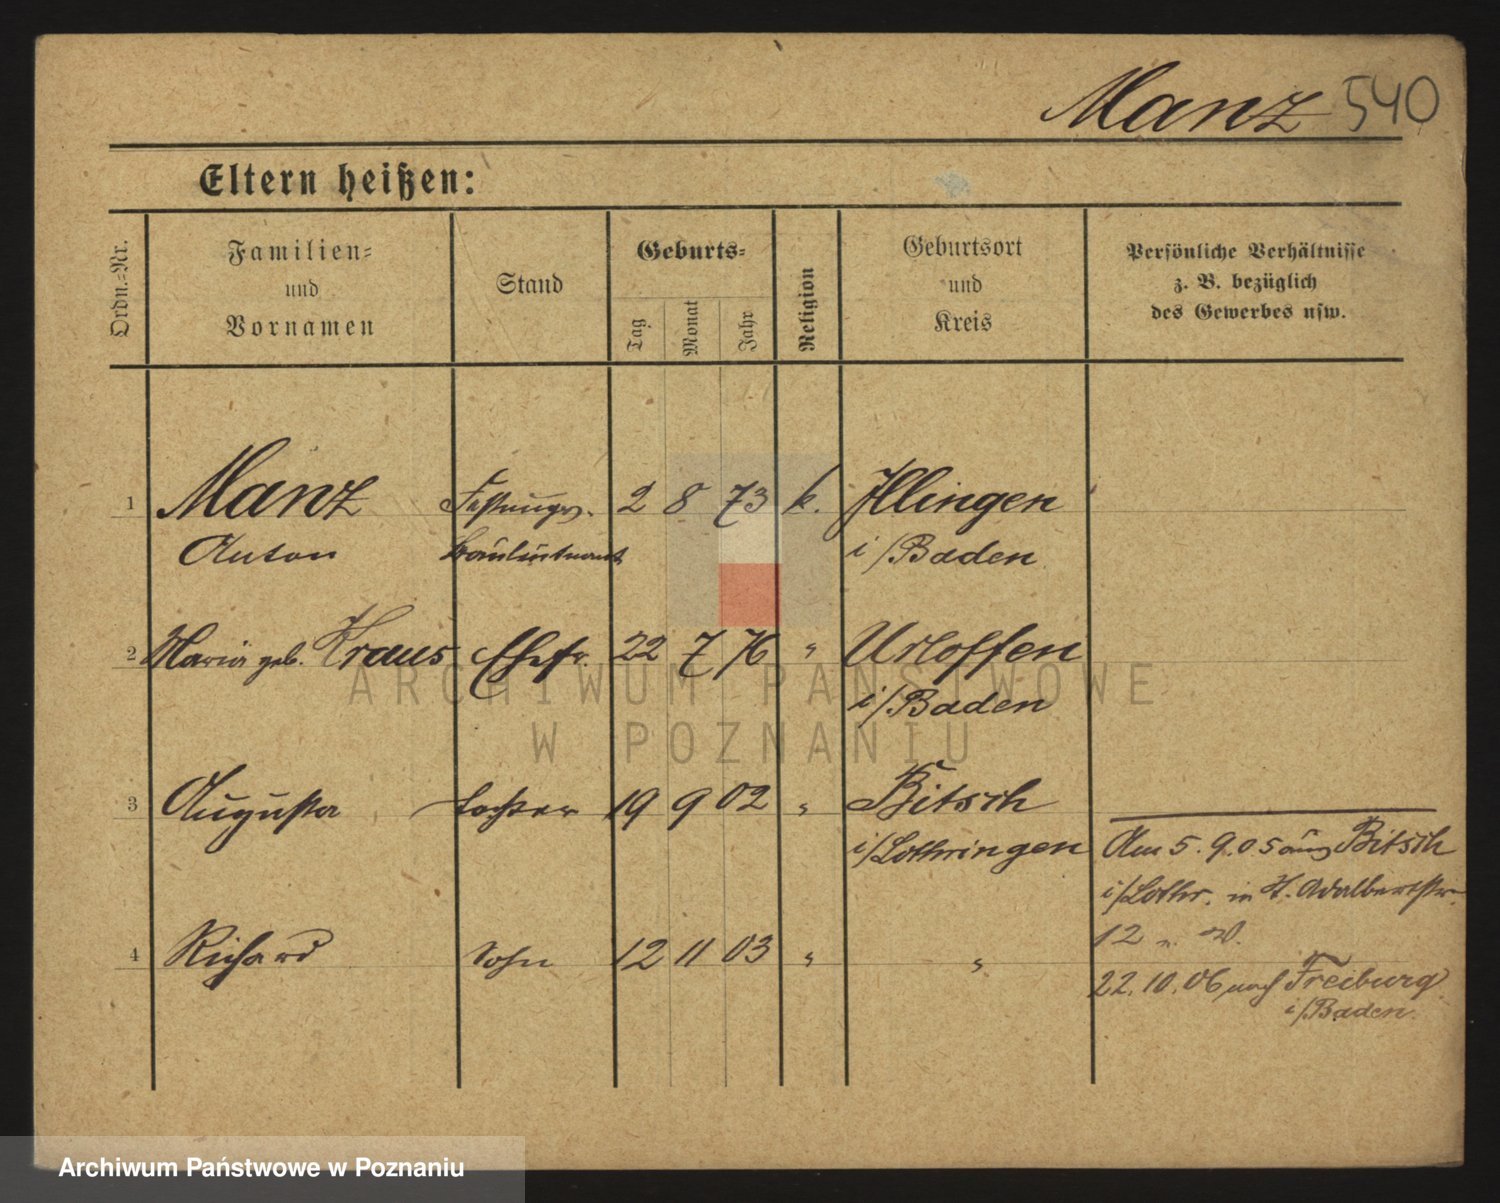 Manz 540
Eltern heißen:
Ordn.-Nr.
Familien-
und
Vornamen
Stand
Geburts-
Tag
Monat
Jahr
Religion
Geburtsort
und
Kreis
Persönliche Verhältnisse
z. B. bezüglich
des Gewerbes usw.
1 Manz Festungs- 2 8 73 k. Illingen
Anton bauleutnant i/Baden
2 Maria geb. Kraus Ehefr. 22 7 76 " Urloffen
i/Baden
3 Augusta Tochter 19 9 02 " Bitsch
i/Lothringen
Am 5.9.05 aus Bitsch
i/Lothr. in St. Adalbertstr.
12 n. W.
4 Richard Sohn 12 11 03 " "
22.10.06 nach Freiburg
i/Baden.
ARCHIWUM PAŃSTWOWE
W POZNANIU
Archiwum Państwowe w Poznaniu